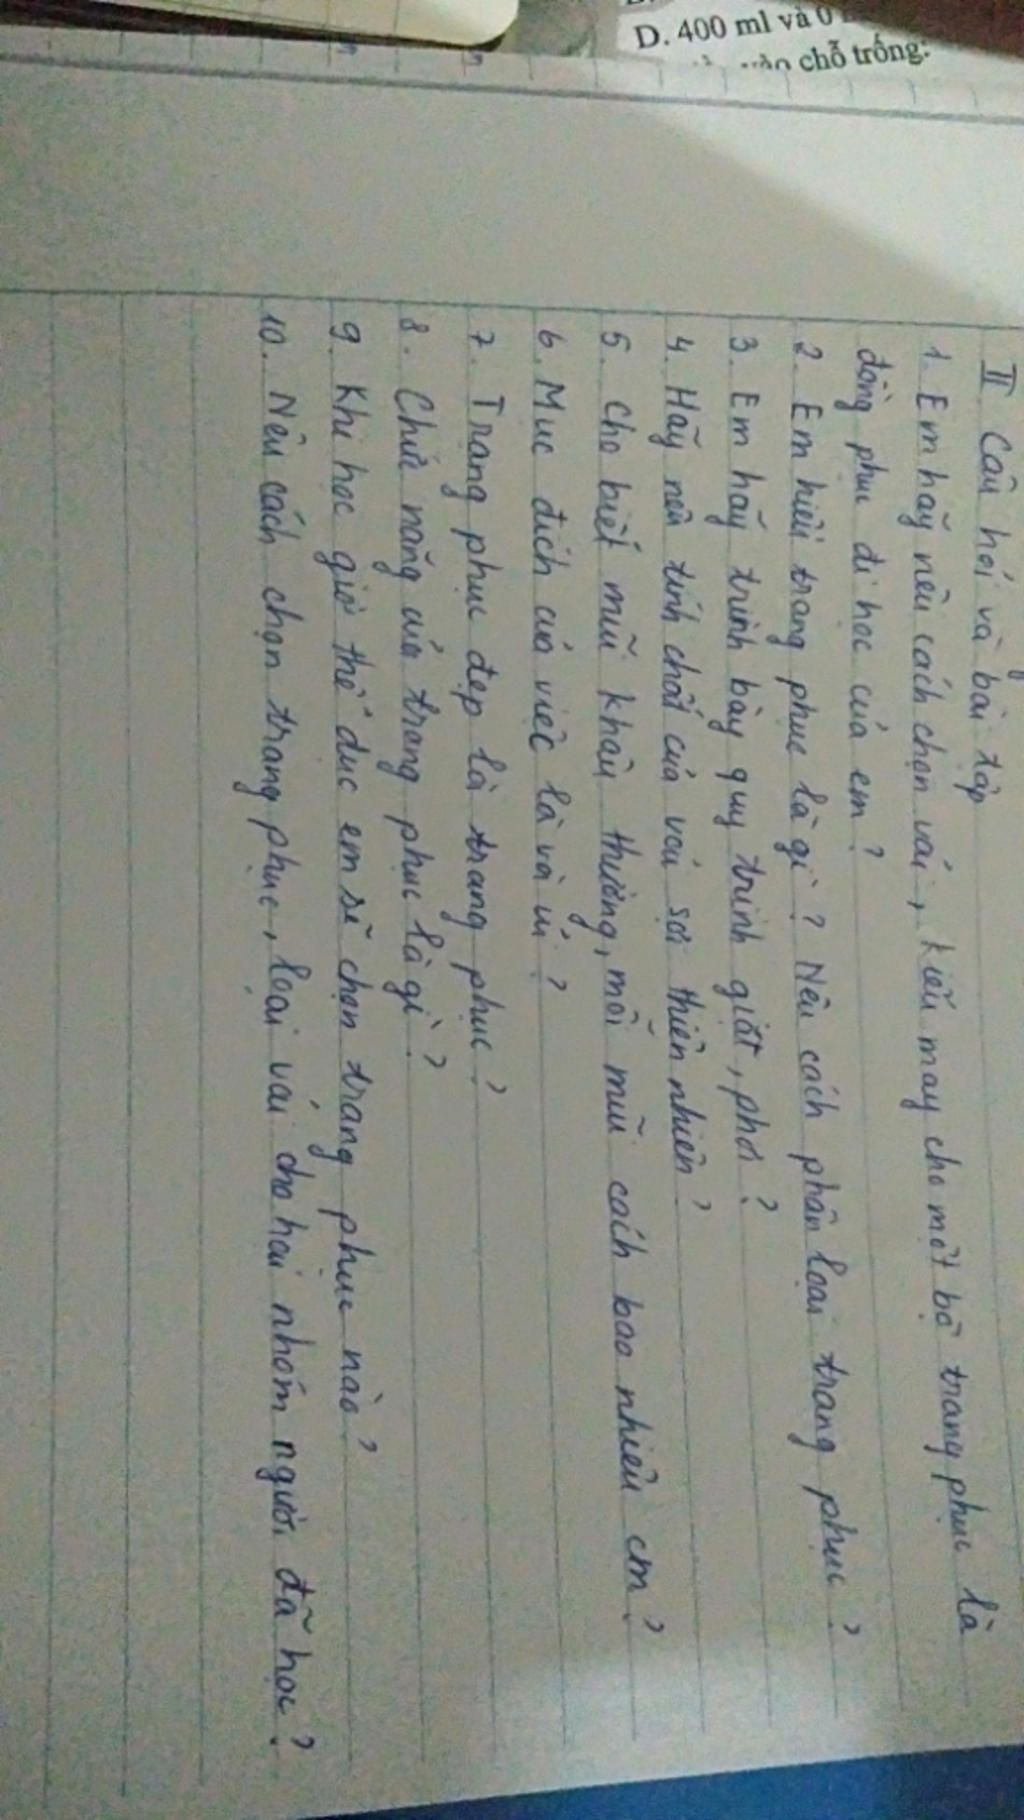 D. 400 ml và 0
chỗ trống:
II Câu hỏi và bài tập
1. Em hãy nêu cách chọn vải, kiểu may cho một bộ trang phục là
đồng phục đi học của em?
2. Em hiểu trang phục là gì? Nêu cách phân loại trang phục?
3. Em hãy trình bày quy trình giặt, phơi?
4. Hãy nêu tính chất của vải sợi thiên nhiên?
5. Cho biết mũi khâu thường, mỗi mũi cách bao nhiêu cm?
6. Mục đích của việc là và ủi?
7. Trang phục đẹp là trang phục?
8. Chức năng của trang phục là gì?
9 Khi học giờ thể dục em sẽ chọn trang phục nào?
10. Nêu cách chọn trang phục, loại vải cho hai nhóm người đã học?